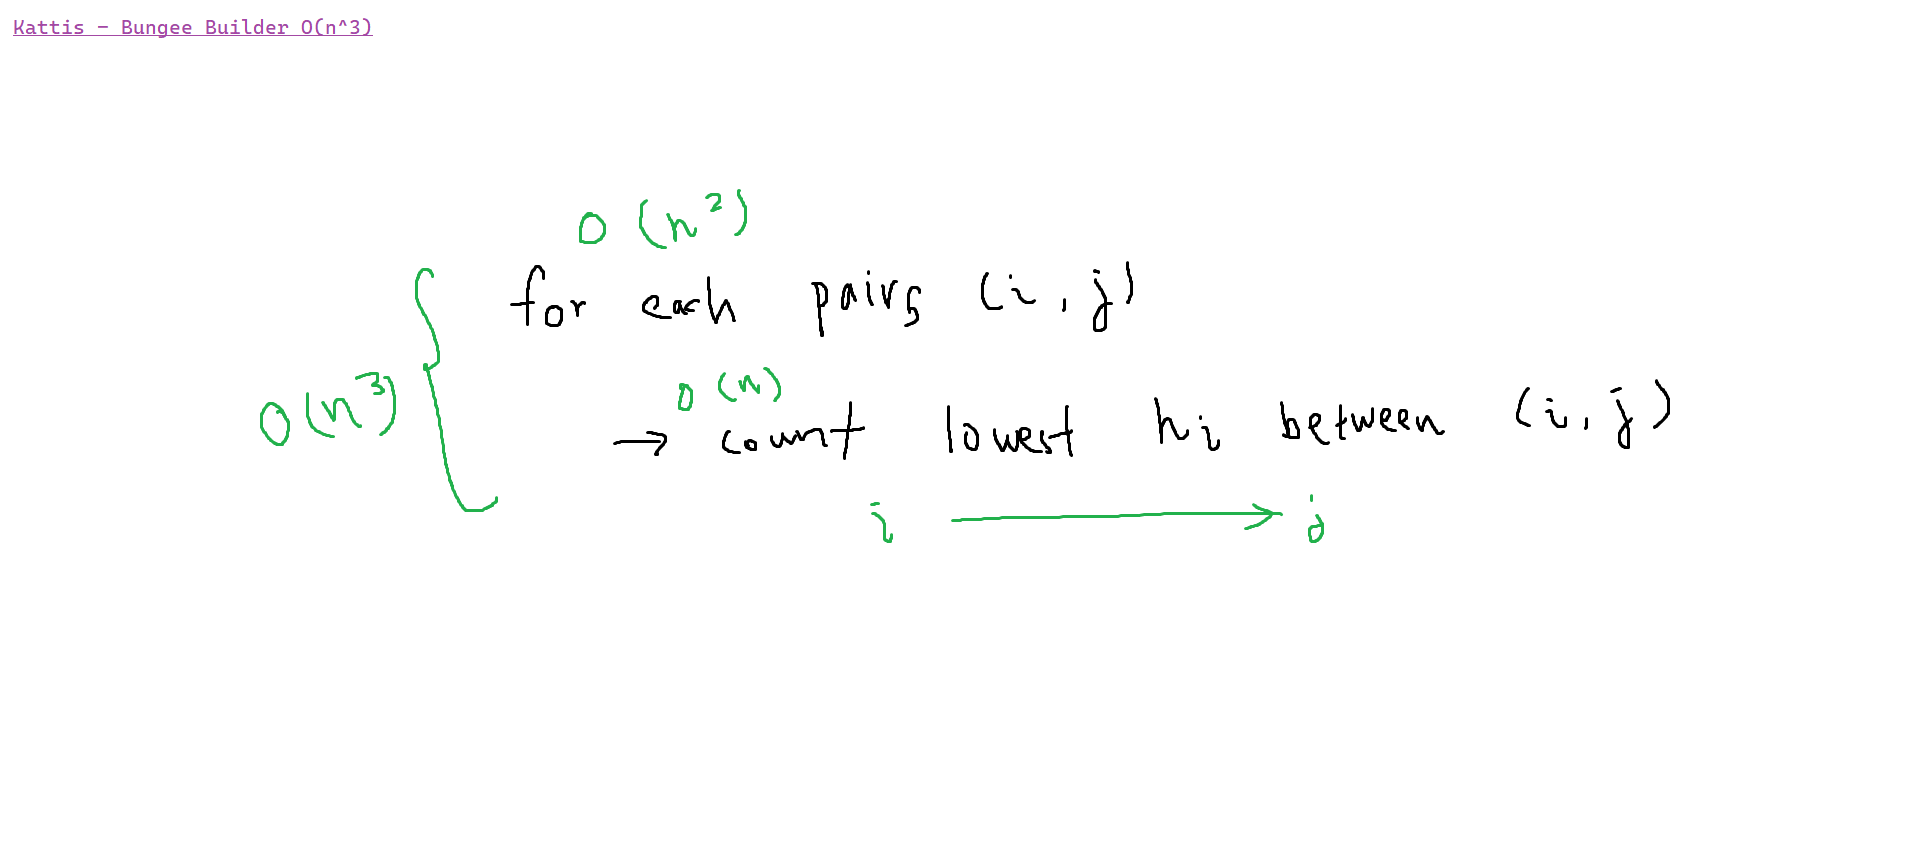 Kattis - Bungee Builder O(n^3)
O(n²)
for each pairs (i, j)
O(n³)
O(n)
→ count lowest hi between (i, j)
i → j